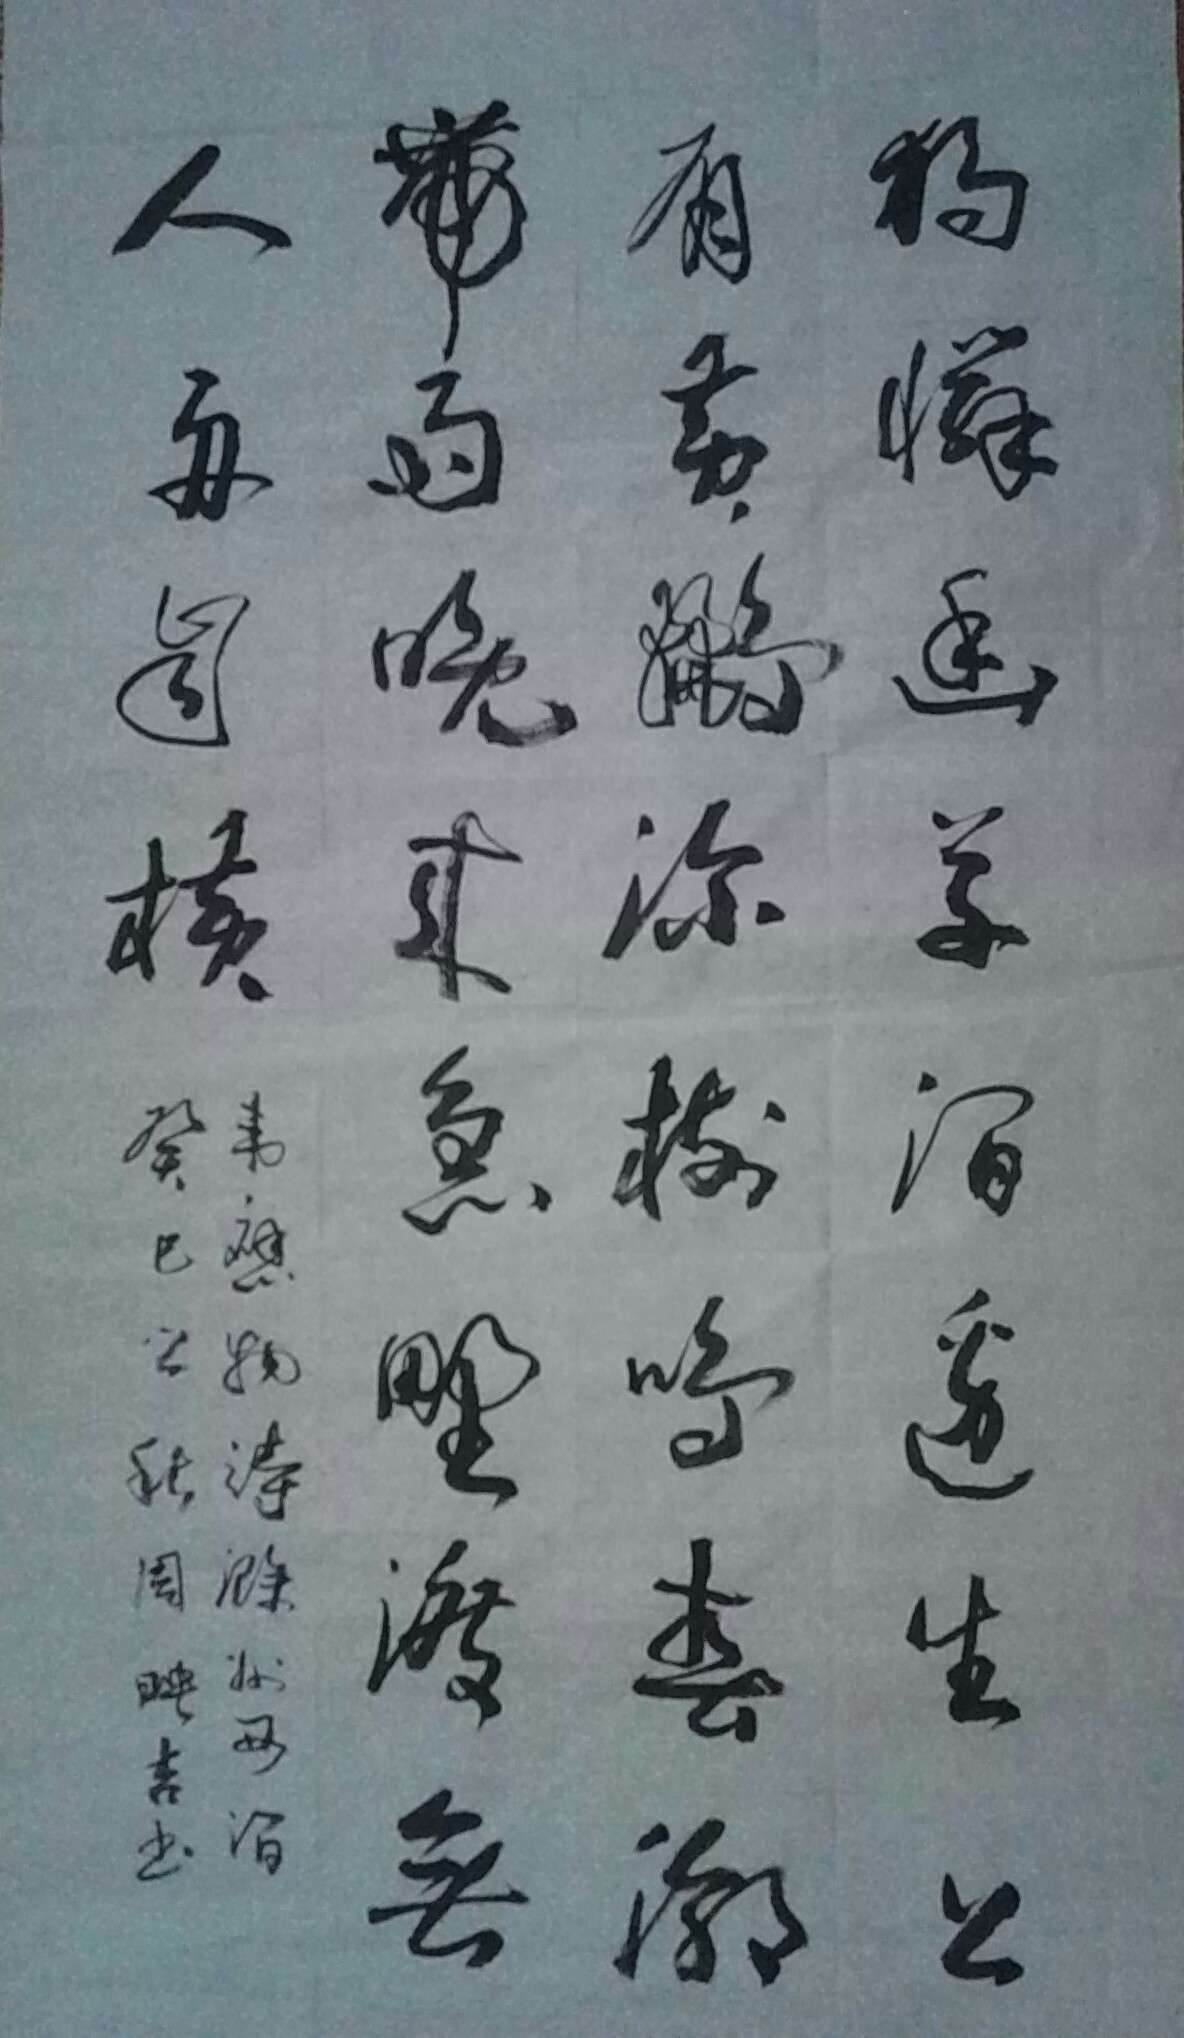 独怜幽草涧边生上
有黄鹂深树鸣春潮
带雨晚来急野渡无
人舟自横
韦应物诗滁州西涧
癸巳之秋周映吉书